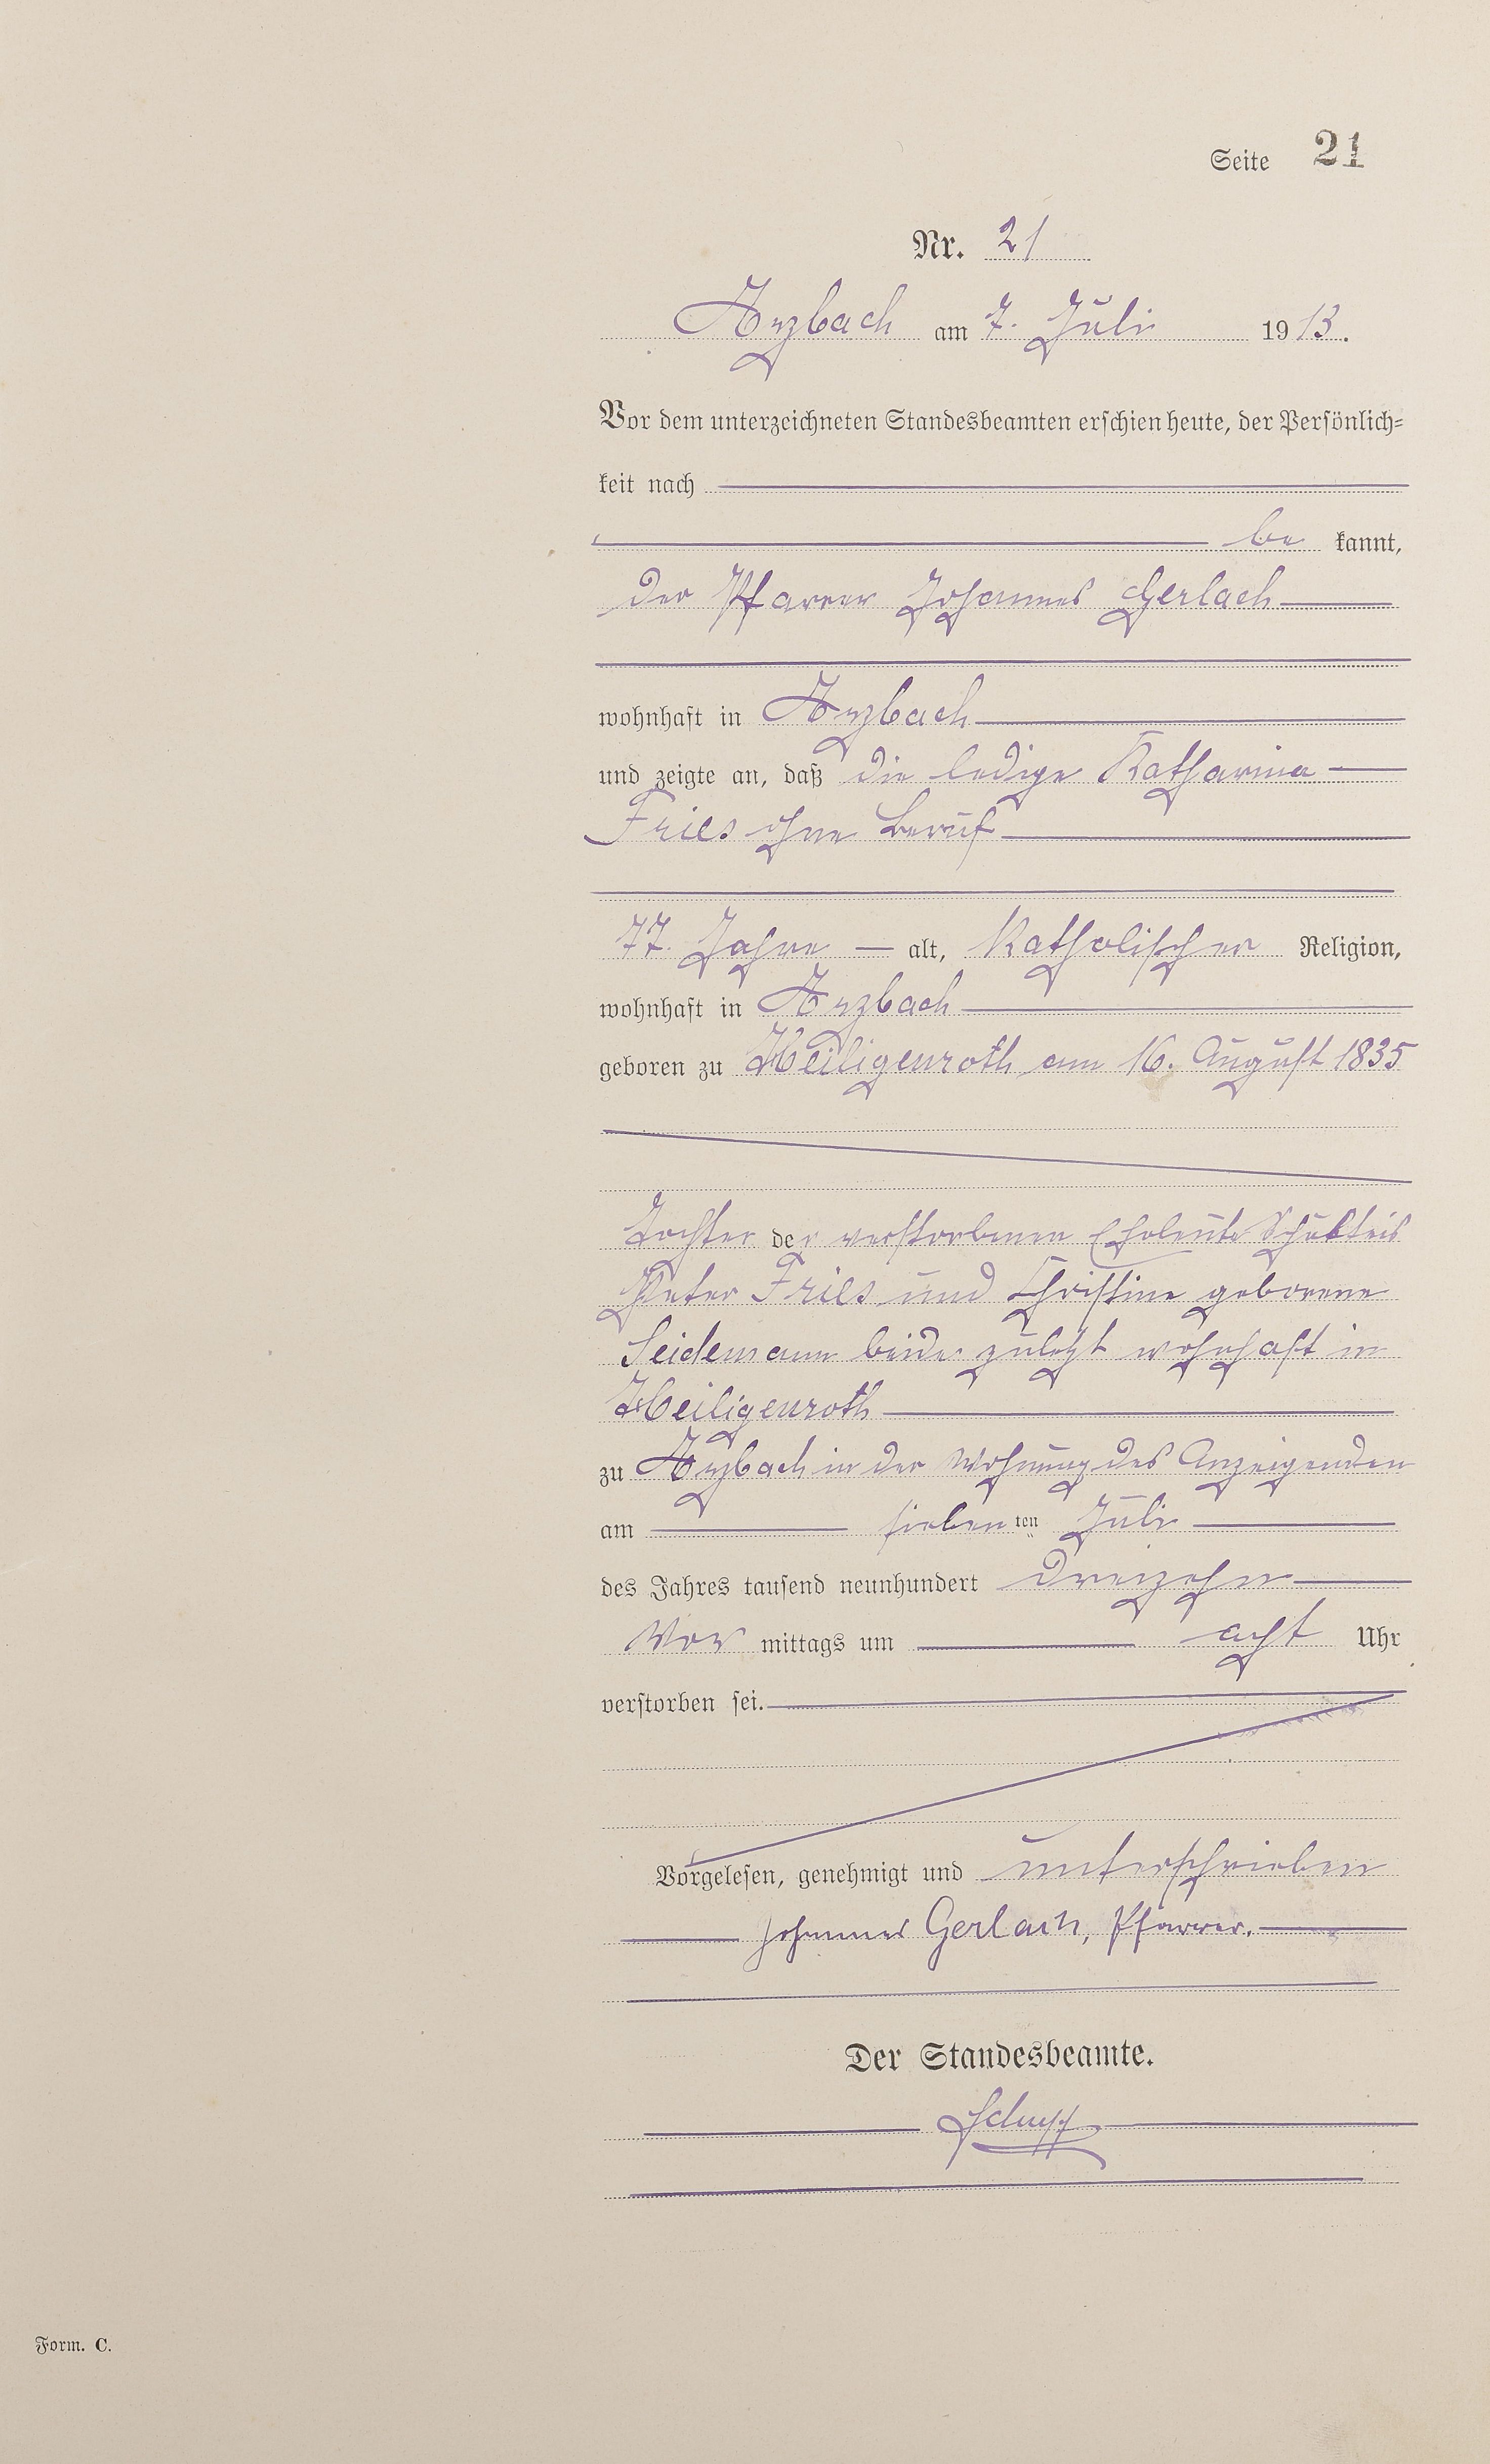 Seite 21
Nr. 21
Arzbach am 7. Juli 1913.
Vor dem unterzeichneten Standesbeamten erschien heute, der Persönlich-
keit nach
be kannt,
der Pfarrer Johannes Gerlach
wohnhaft in Arzbach
und zeigte an, daß die ledige Katharina
Fries ohne Beruf
77. Jahre alt, Katholischer Religion,
wohnhaft in Arzbach
geboren zu Heiligenroth am 16. August 1835
Tochter der verstorbenen Eheleute
Peter Fries und Christine geborene
Seidemann beide zuletzt wohnhaft in
Heiligenroth
zu Arzbach in der Wohnung des Anzeigenden
am siebenten Juli
des Jahres tausend neunhundert dreizehn
Vor mittags um acht Uhr
verstorben sei.
Vorgelesen, genehmigt und unterschrieben
Johannes Gerlach, Pfarrer.
Der Standesbeamte.
Form. C.